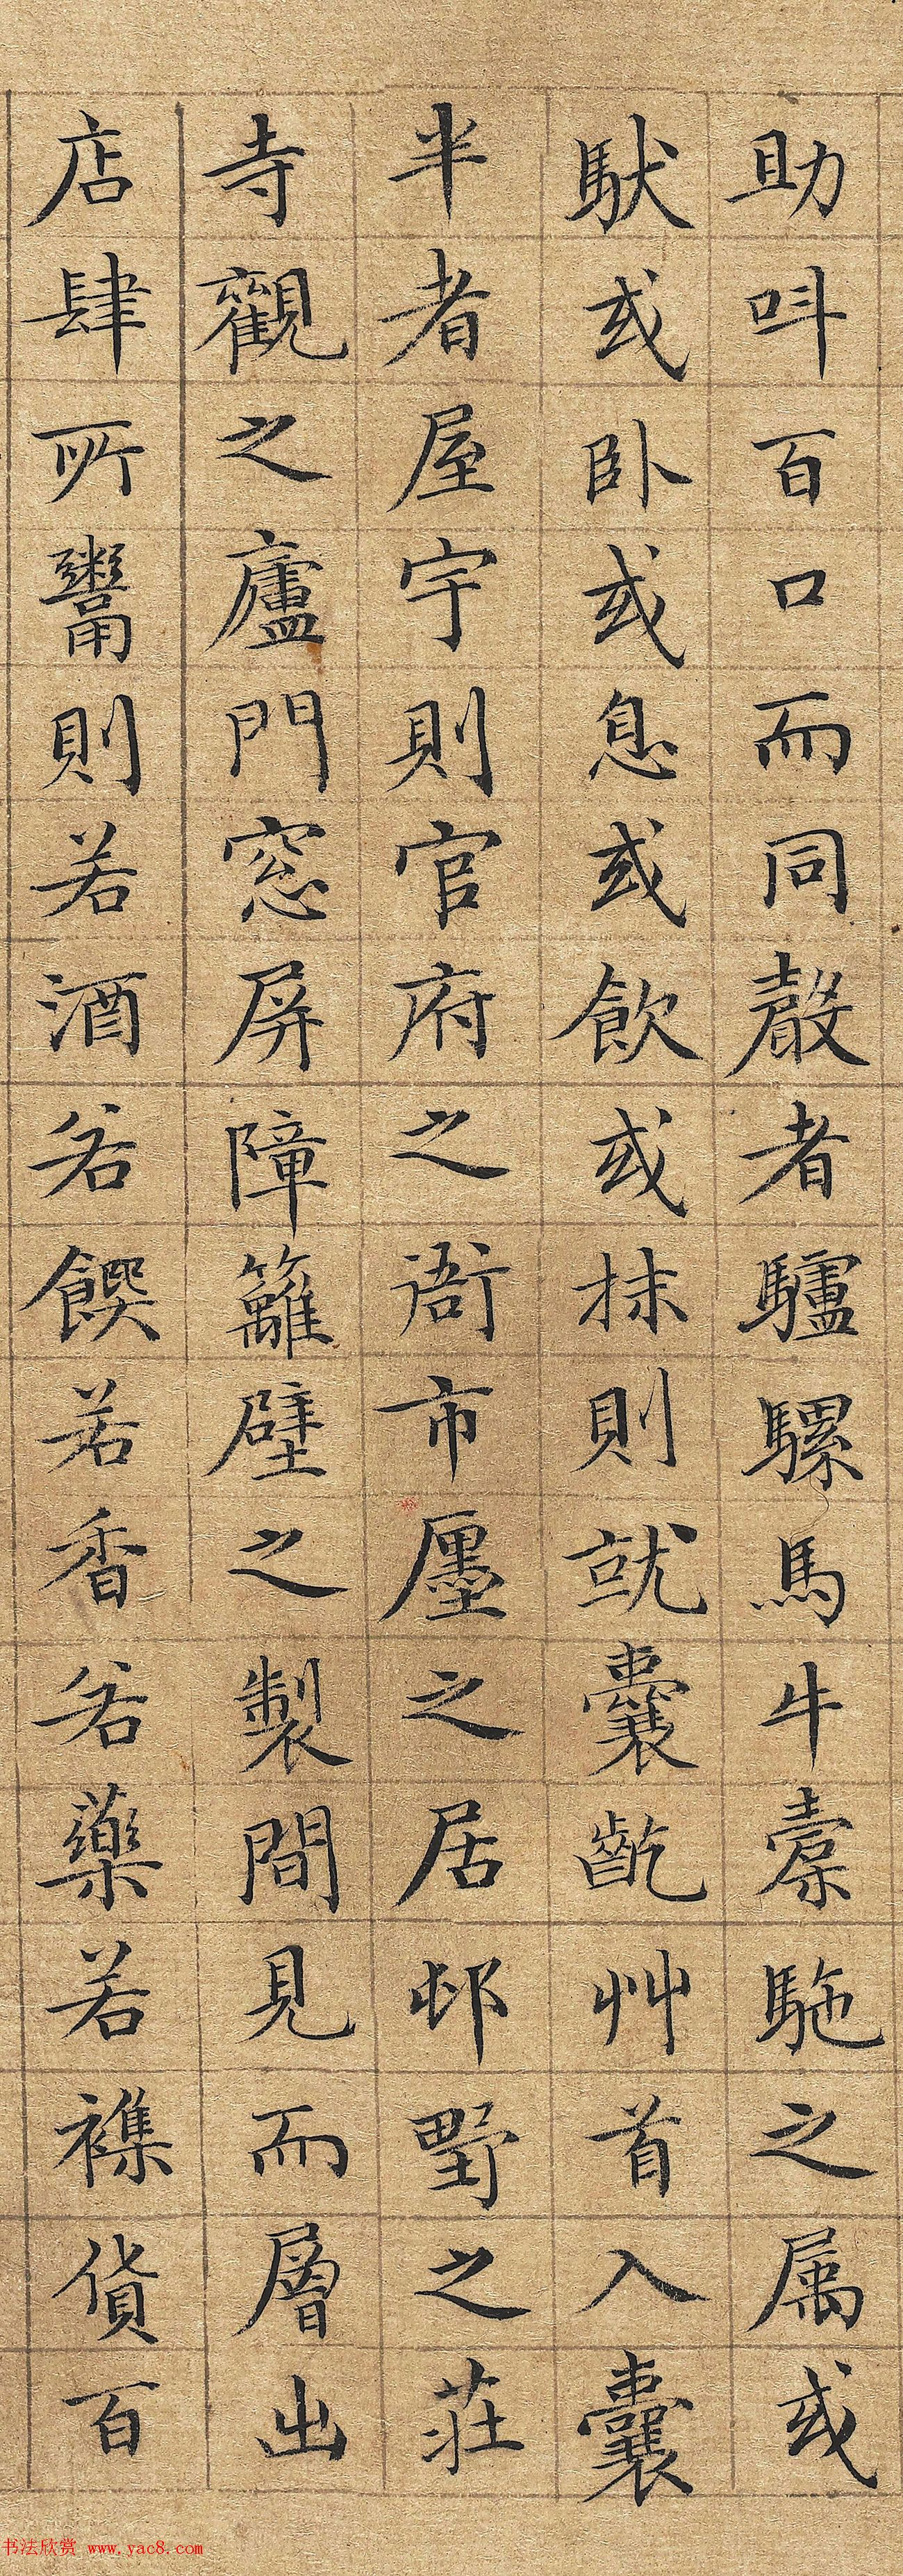 助呌百口而同聲者驢騾馬牛橐駞之属或
馱或卧或息或飲或抹則就囊齕艸首入囊
半者屋宇則官府之衙市廛之居邨野之莊
寺觀之廬門窓屏障籬壁之製間見而層出
店肆所鬻則若酒若饌若香若藥若襍貨百
书法欣赏 www.yac8.com